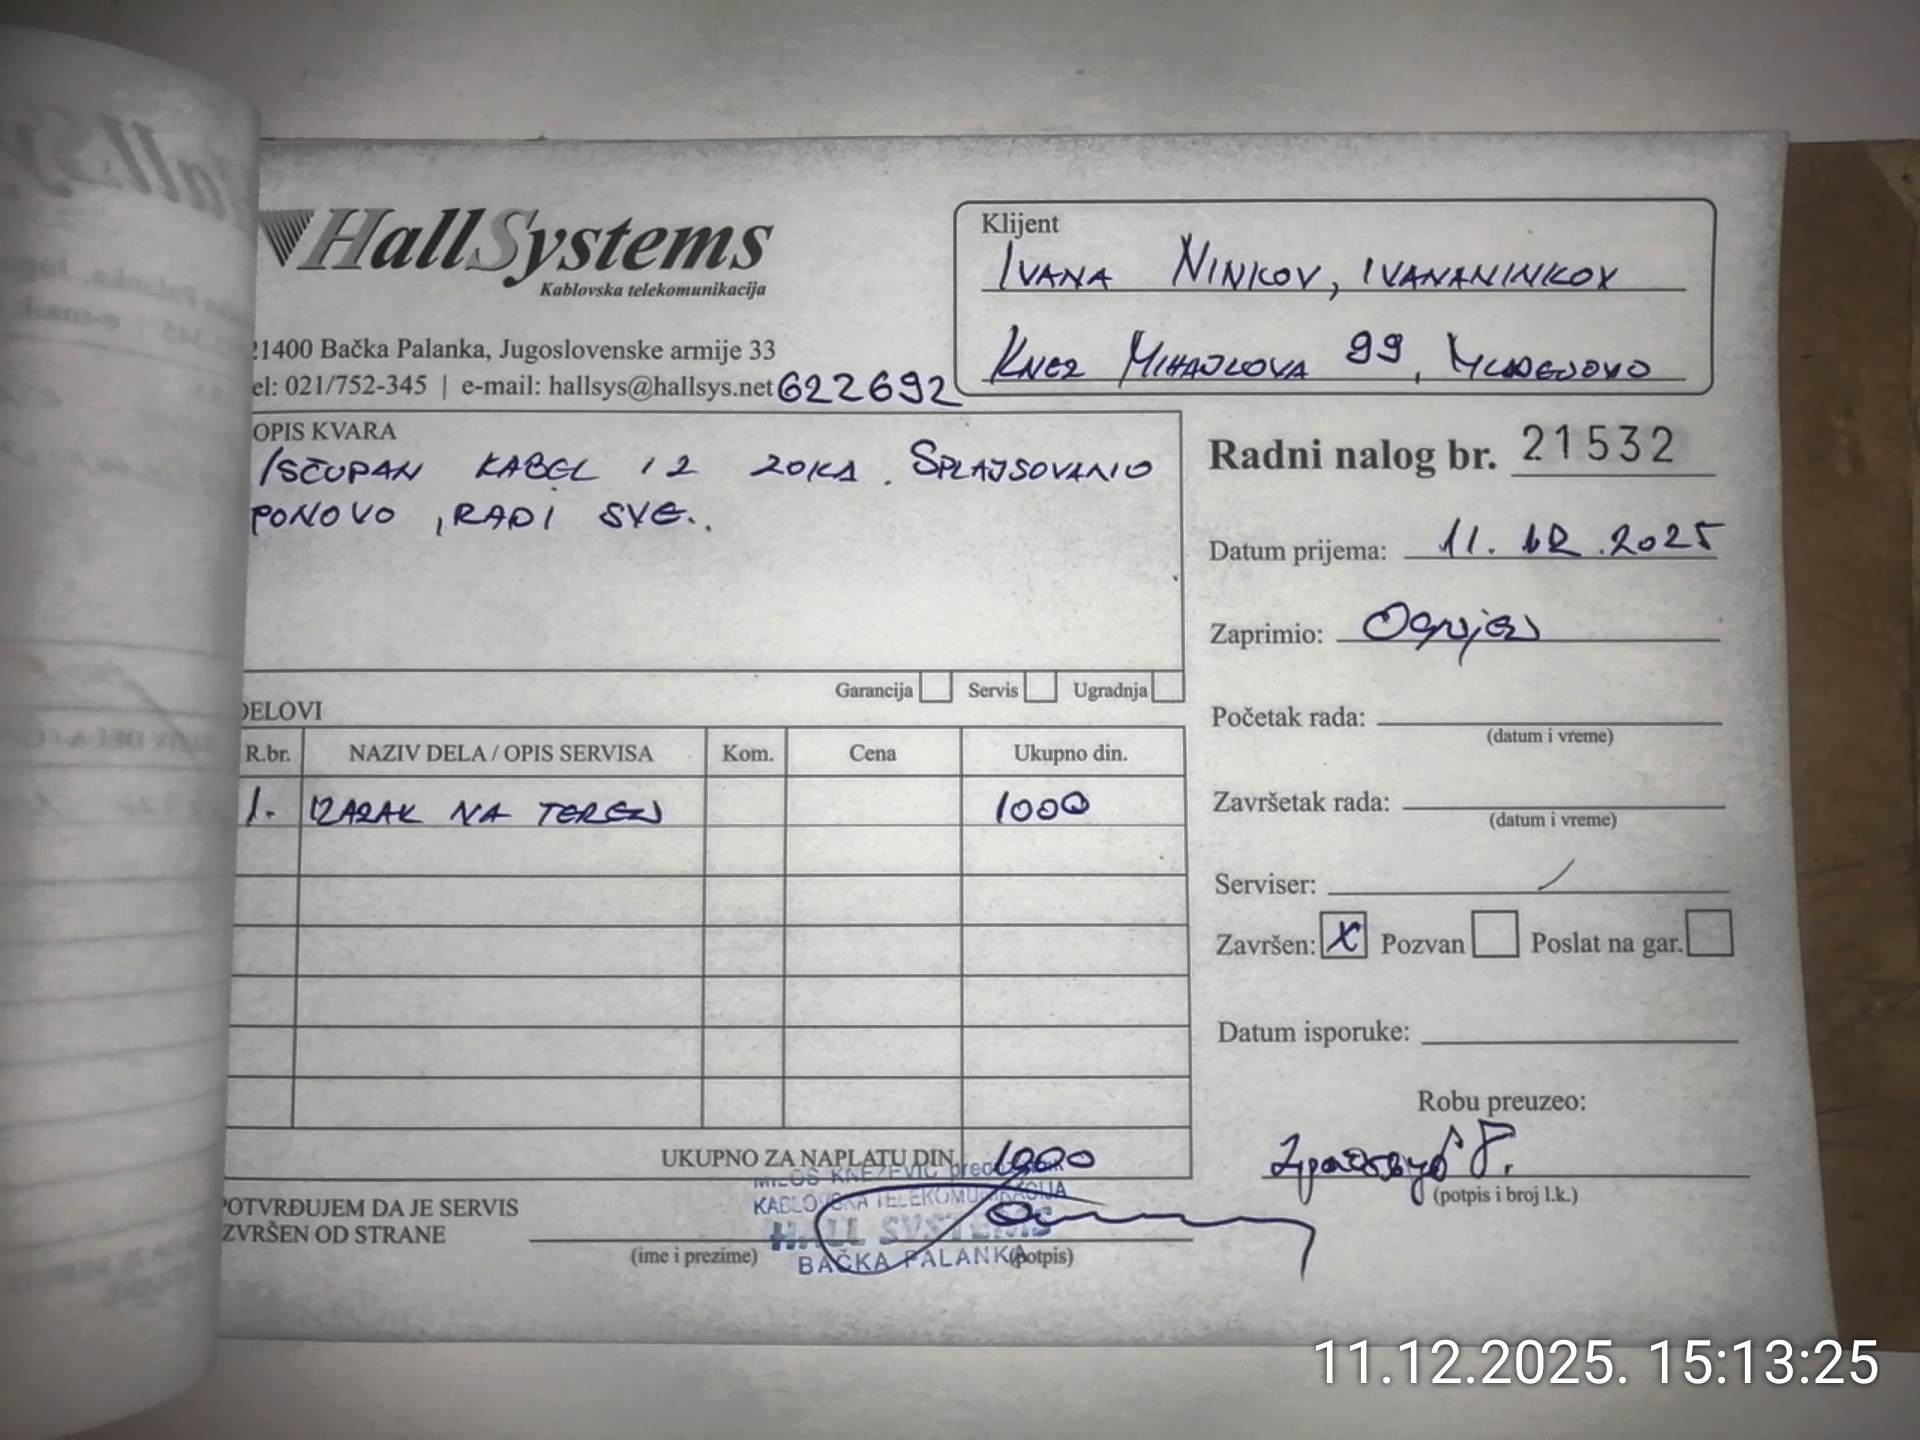 HallSystems
Kablovska telekomunikacija
21400 Bačka Palanka, Jugoslovenske armije 33
el: 021/752-345 | e-mail: hallsys@hallsys.net 622692
Klijent
IVANA NINKOV, IVANANINKOV
KNEZ MIHAJLOVA 99, MLADENOVO
OPIS KVARA
IŠČUPAN KABEL IZ ZOKA. SPLAJSOVANIO
PONOVO, RADI SVE..
Garancija Servis Ugradnja
Radni nalog br. 21532
Datum prijema: 11.12.2025
Zaprimio: Ognjen
Početak rada:
(datum i vreme)
Završetak rada:
(datum i vreme)
Serviser: /
Završen: X Pozvan Poslat na gar.
Datum isporuke:
Robu preuzeo:
(potpis i broj l.k.)
DELOVI
R.br. NAZIV DELA / OPIS SERVISA Kom. Cena Ukupno din.
1. IZAZAK NA TEREN 1000
UKUPNO ZA NAPLATU DIN. 1000
POTVRĐUJEM DA JE SERVIS
IZVRŠEN OD STRANE
(ime i prezime) (potpis)
MILOŠ KNEŽEVIĆ preduzetnik
KABLOVSKA TELEKOMUNIKACIJA
HALL SYSTEMS
BAČKA PALANKA
11.12.2025. 15:13:25